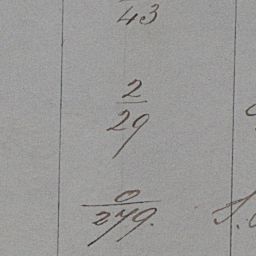 43
2
29
0
279. S.